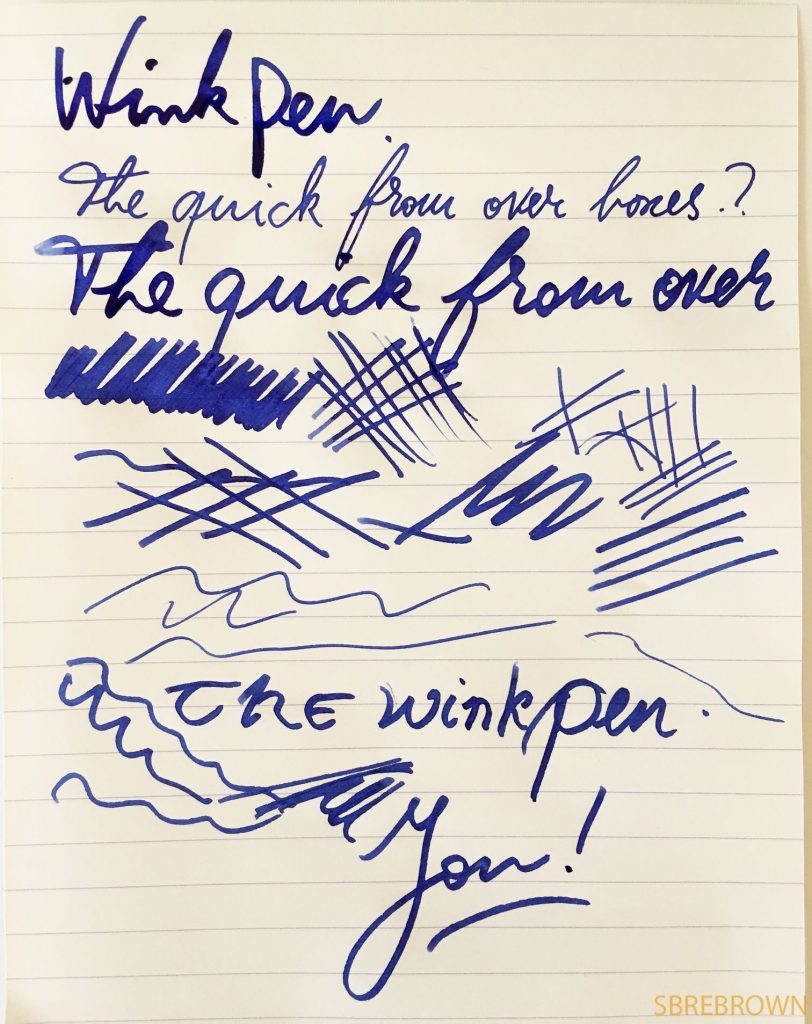 Wink Pen.
The quick from over boxes.?
The quick from over
THE winkpen.
You!
SBREBROWN